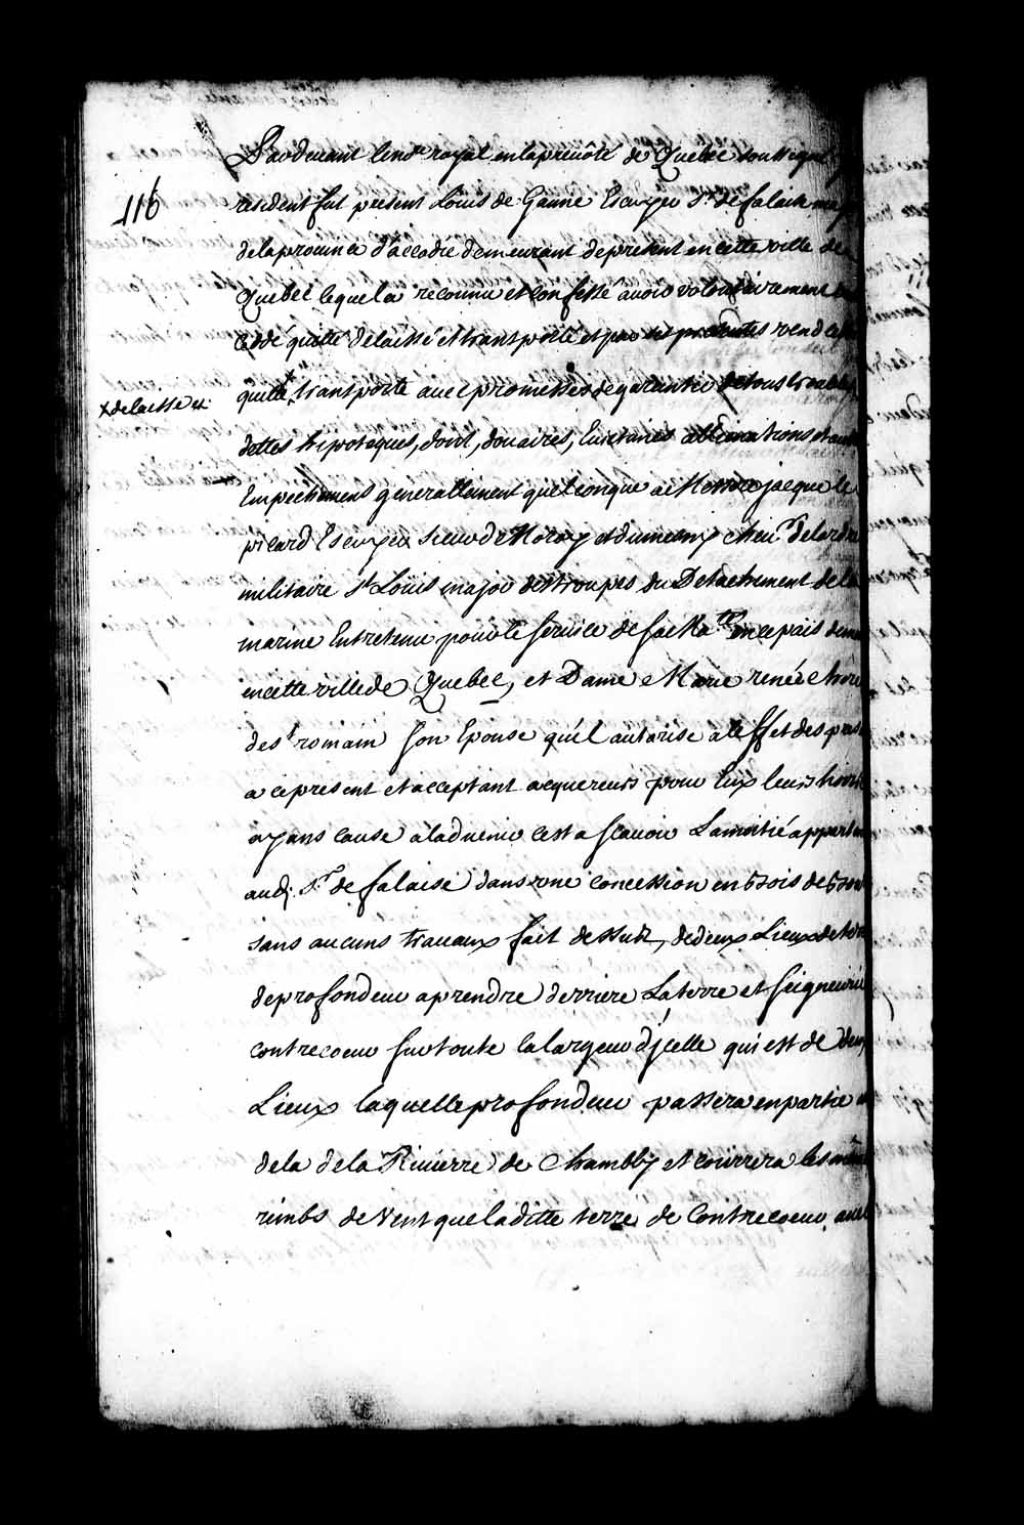 Pardevant le no.re royal en la prevôté de Quebec soussigné
116
resident fut present Louis de Ganne Escuyer Sr. de falaise
de la province d'accadie demeurant de present en cette ville de
Quebec lequel a reconnu et confessé avoir volontairement
cedé quitté delaissé et transporté et par ses presentes vend cede
quitte x transporte avec promesses de garantir de tous troubles
x delaisse et
dettes hipoteques, dont, douaires, Evictions allienations et autres
Empechemens generallement quelconque a Messire jacque le
picard Escuyer sieur de Noroy et dumesny cheur. de lordre
militaire St Louis major des troupes du Detachement de la
marine Entretenue pour le service de sa Ma.té en ce païs
en cette ville de Quebec, et Dame Marie renée
de st romain son Epouse qu'il autorise a l'effet des
a ce present et acceptant acquereurs pour Eux leurs hoirs
ayans cause a ladvenir cest a scavoir La moitié
aud. Sr. de falaise dans une concession en bois de bout
sans aucuns travaux fait dessus, de deux Lieux de
de profondeur a prendre derriere La terre et seigneurie
contrecoeur sur toute la largeur d'jcelle qui est de deux
Lieux laquelle profondeur passera en partie
dela de la Rivierre de Chambly et courrera les
rimbs de vent que laditte terre de Contrecoeur,